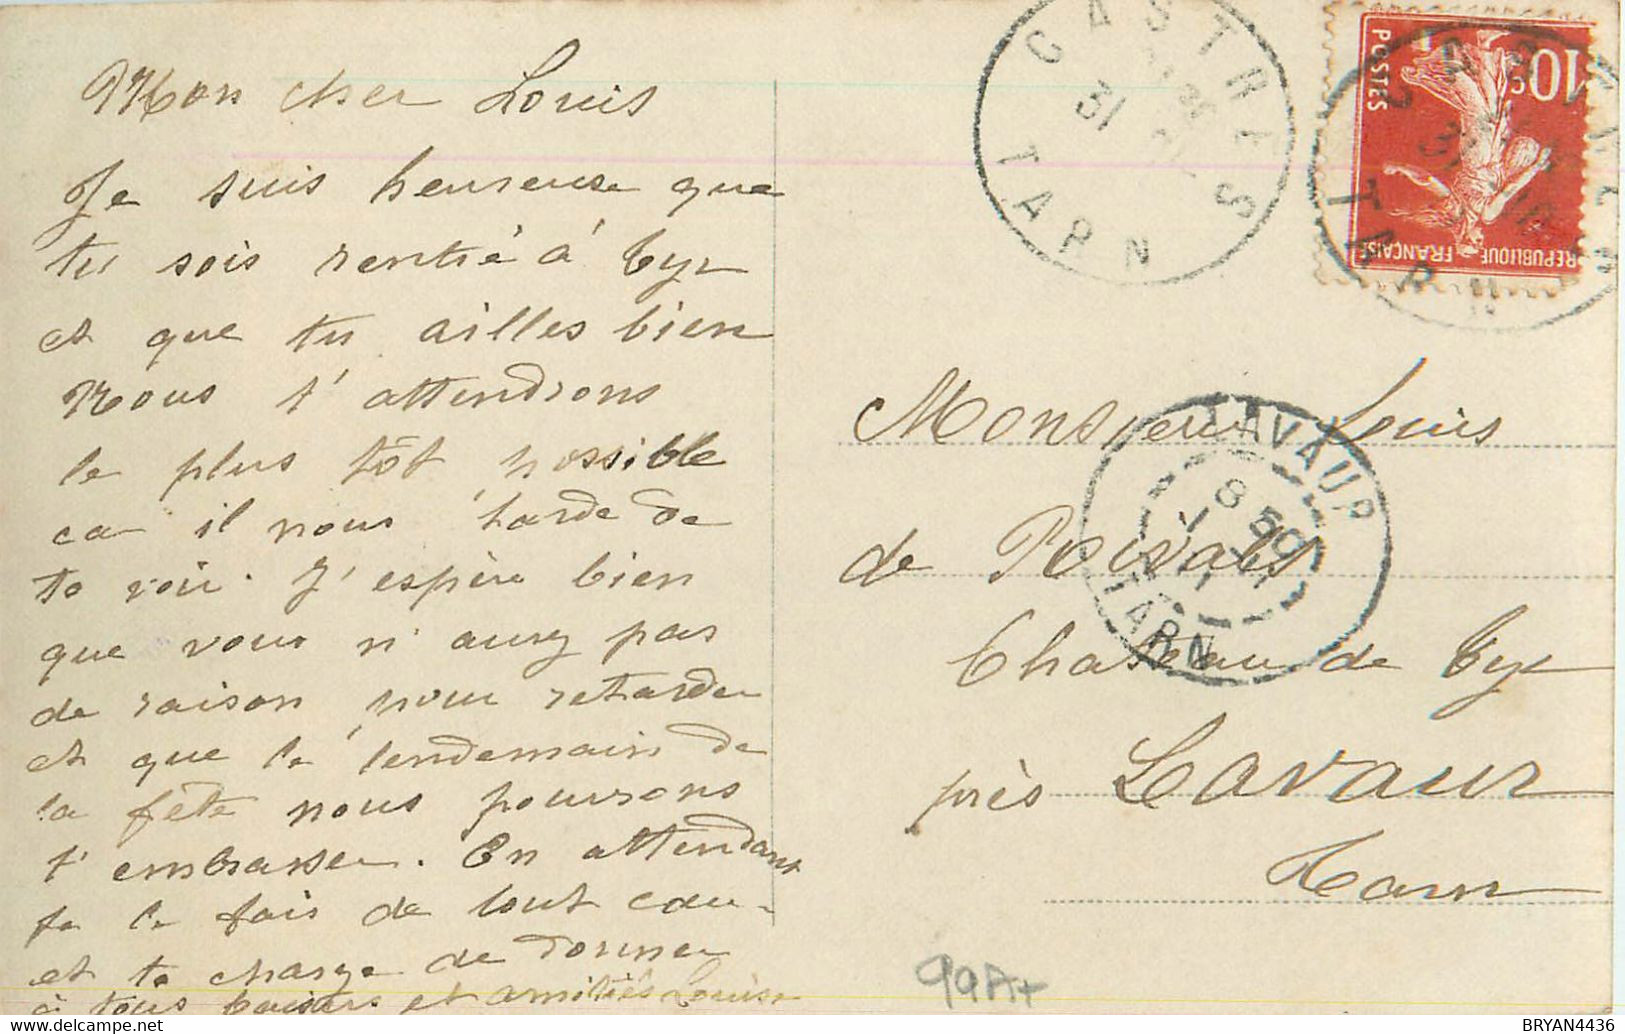 Mon cher Louis
Je suis heureuse que
tu sois rentré à Cyr
et que tu ailles bien
Nous t'attendrons
le plus tôt possible
car il nous tarde de
te voir. J'espère bien
que vous n'aurez pas
de raison pour retarder
et que le lendemain de
la fête nous pourrons
t'embrasser. En attendant
je le fais de tout cœur
et te charge de donner
à tous baisers et amitiés Louise
CASTRES
31
TARN
POSTES
10c
REPUBLIQUE FRANÇAISE
CASTRES
31
TARN
Monsieur Louis
de Poivals
Chateau de Cyr
près Lavaur
Tarn
LAVAUR
8 50
TARN
99A+
BRYAN4436